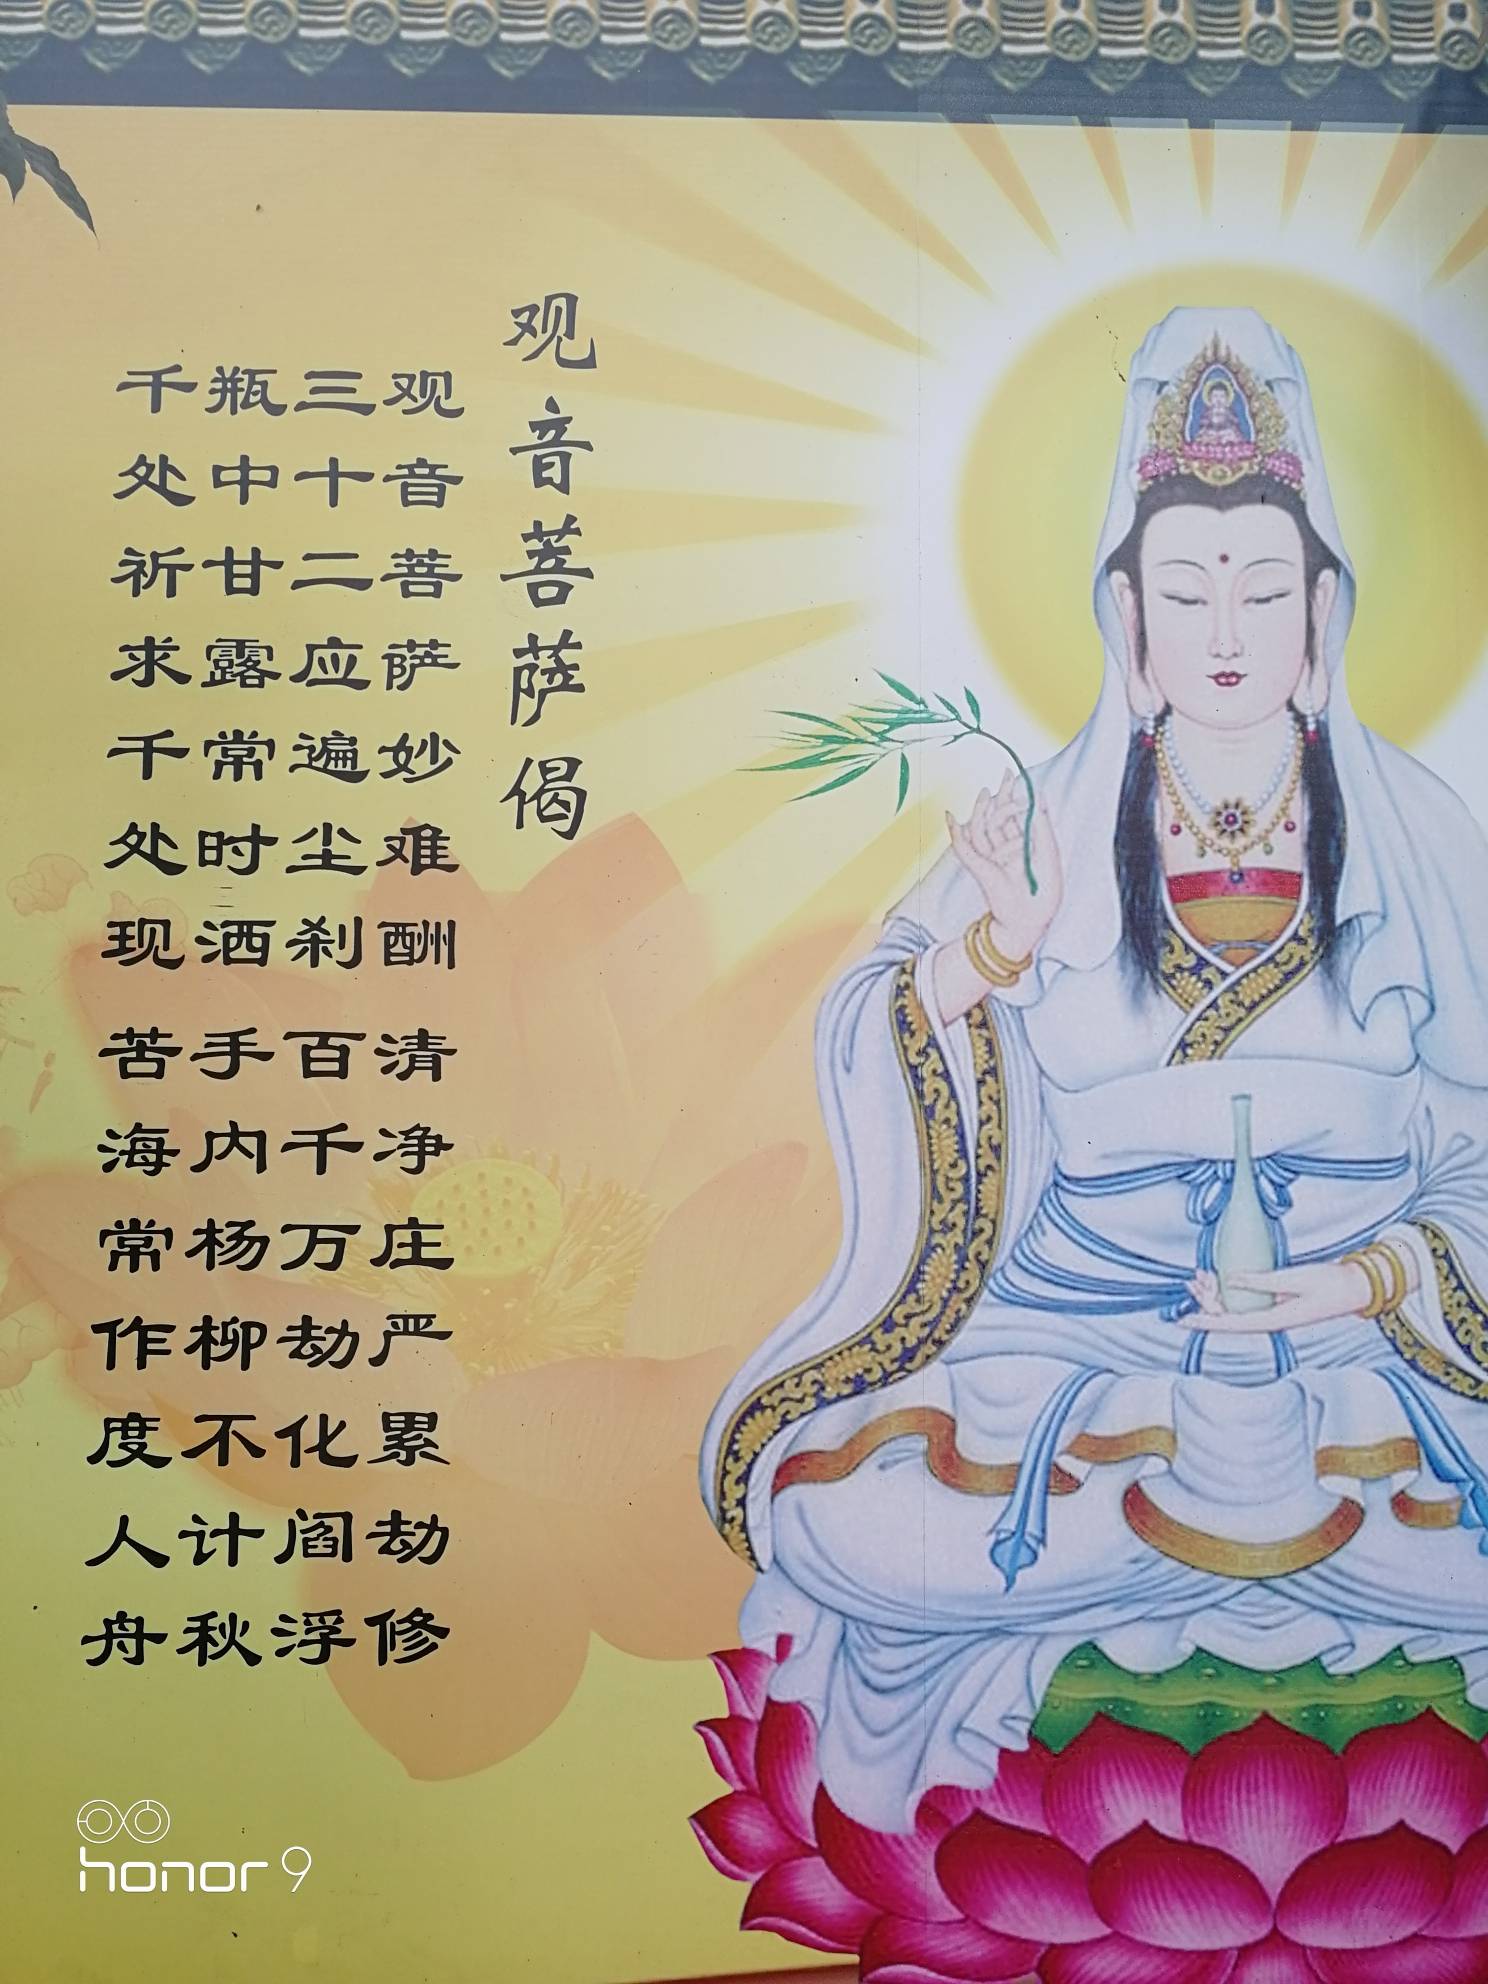 观音菩萨偈
观音菩萨妙难酬 清净庄严累劫修
三十二应遍尘刹 百千万劫化阎浮
瓶中甘露常时洒 手内杨柳不计秋
千处祈求千处现 苦海常作度人舟
honor 9